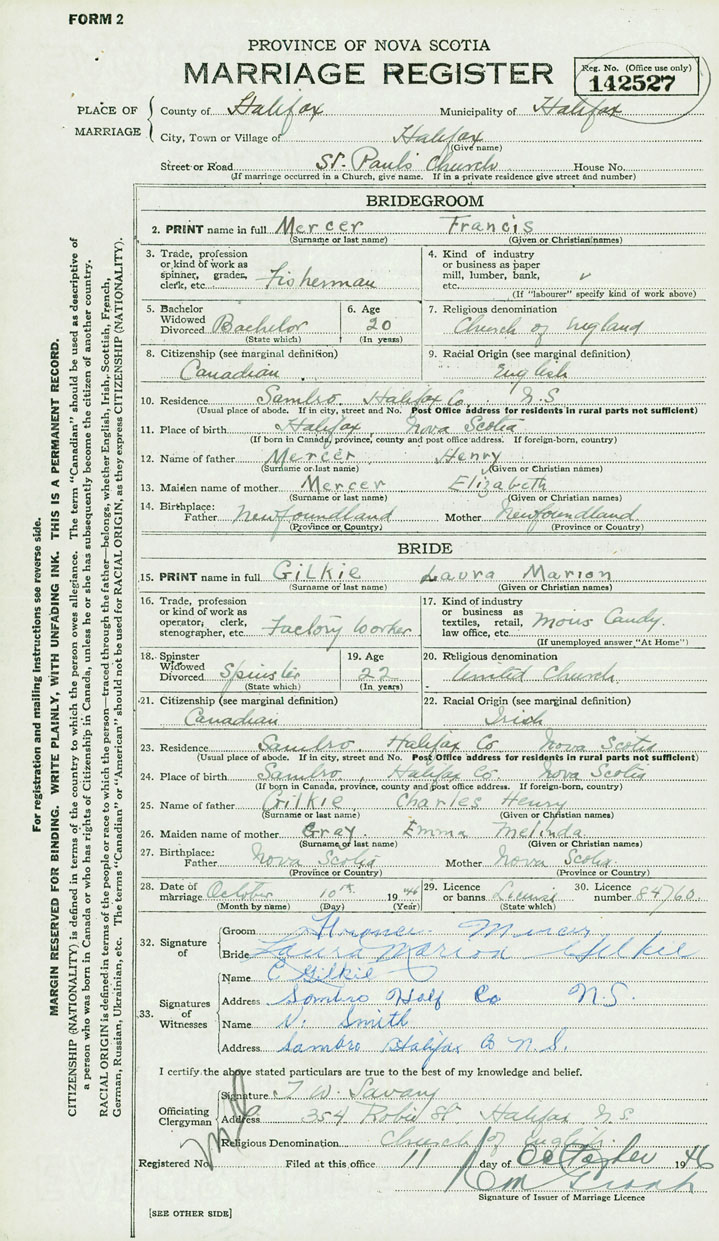 FORM 2
PROVINCE OF NOVA SCOTIA
MARRIAGE REGISTER
Reg. No. (Office use only)
142527
PLACE OF MARRIAGE
County of Halifax Municipality of Halifax
City, Town or Village of Halifax
(Give name)
Street or Road St. Paul's Church House No.
(If marriage occurred in a Church, give name. If in a private residence give street and number)
BRIDEGROOM
2. PRINT name in full Mercer Francis
(Surname or last name) (Given or Christian names)
3. Trade, profession or kind of work as spinner, grader, clerk, etc. Fisherman
4. Kind of industry or business as paper mill, lumber, bank, etc.
(If "labourer" specify kind of work above)
5. Bachelor Widowed Divorced Bachelor
(State which)
6. Age 20
(In years)
7. Religious denomination
Church of England
8. Citizenship (see marginal definition)
Canadian
9. Racial Origin (see marginal definition)
English
10. Residence Sambro, Halifax Co. N.S
(Usual place of abode. If in city, street and No. Post Office address for residents in rural parts not sufficient)
11. Place of birth Halifax, Nova Scotia
(If born in Canada, province, county and post office address. If foreign-born, country)
12. Name of father Mercer Henry
(Surname or last name) (Given or Christian names)
13. Maiden name of mother Mercer Elizabeth
(Surname or last name) (Given or Christian names)
14. Birthplace: Father Newfoundland Mother Newfoundland
(Province or Country) (Province or Country)
BRIDE
15. PRINT name in full GILKIE Laura Marion
(Surname or last name) (Given or Christian names)
16. Trade, profession or kind of work as operator, clerk, stenographer, etc. Factory Worker
17. Kind of industry or business as textiles, retail, law office, etc. Moirs Candy.
(If unemployed answer "At Home")
18. Spinster Widowed Divorced Spinster
(State which)
19. Age 22
(In years)
20. Religious denomination
United Church
21. Citizenship (see marginal definition)
Canadian
22. Racial Origin (see marginal definition)
Irish
23. Residence Sambro, Halifax Co Nova Scotia
(Usual place of abode. If in city, street and No. Post Office address for residents in rural parts not sufficient)
24. Place of birth Sambro, Halifax Co. Nova Scotia
(If born in Canada, province, county and post office address. If foreign-born, country)
25. Name of father Gilkie Charles Henry
(Surname or last name) (Given or Christian names)
26. Maiden name of mother Gray. Emma Melinda
(Surname or last name) (Given or Christian names)
27. Birthplace: Father Nova Scotia Mother Nova Scotia
(Province or Country) (Province or Country)
28. Date of marriage October 10th 1946
(Month by name) (Day) (Year)
29. Licence or banns License
(State which)
30. Licence number 84760
32. Signature of
Groom Mercer
Bride Laura Marion Gilkie
33. Signatures of Witnesses
Name C Gilkie
Address Sambro Half Co N.S.
Name V. Smith
Address Sambro Halifax Co N.S.
I certify the above stated particulars are true to the best of my knowledge and belief.
Officiating Clergyman
Signature T W. Savary
Address 354 Robie St. Halifax N.S.
Religious Denomination Church of England
Registered No. Filed at this office 11 day of October 1946
Signature of Issuer of Marriage Licence
[SEE OTHER SIDE]
For registration and mailing instructions see reverse side.
MARGIN RESERVED FOR BINDING. WRITE PLAINLY, WITH UNFADING INK. THIS IS A PERMANENT RECORD.
CITIZENSHIP (NATIONALITY) is defined in terms of the country to which the person owes allegiance. The term "Canadian" should be used as descriptive of
a person who was born in Canada or who has rights of Citizenship in Canada, unless he or she has subsequently become the citizen of another country.
RACIAL ORIGIN is defined in terms of the people or race to which the person—traced through the father—belongs, whether English, Irish, Scottish, French,
German, Russian, Ukrainian, etc. The terms "Canadian" or "American" should not be used for RACIAL ORIGIN, as they express CITIZENSHIP (NATIONALITY).